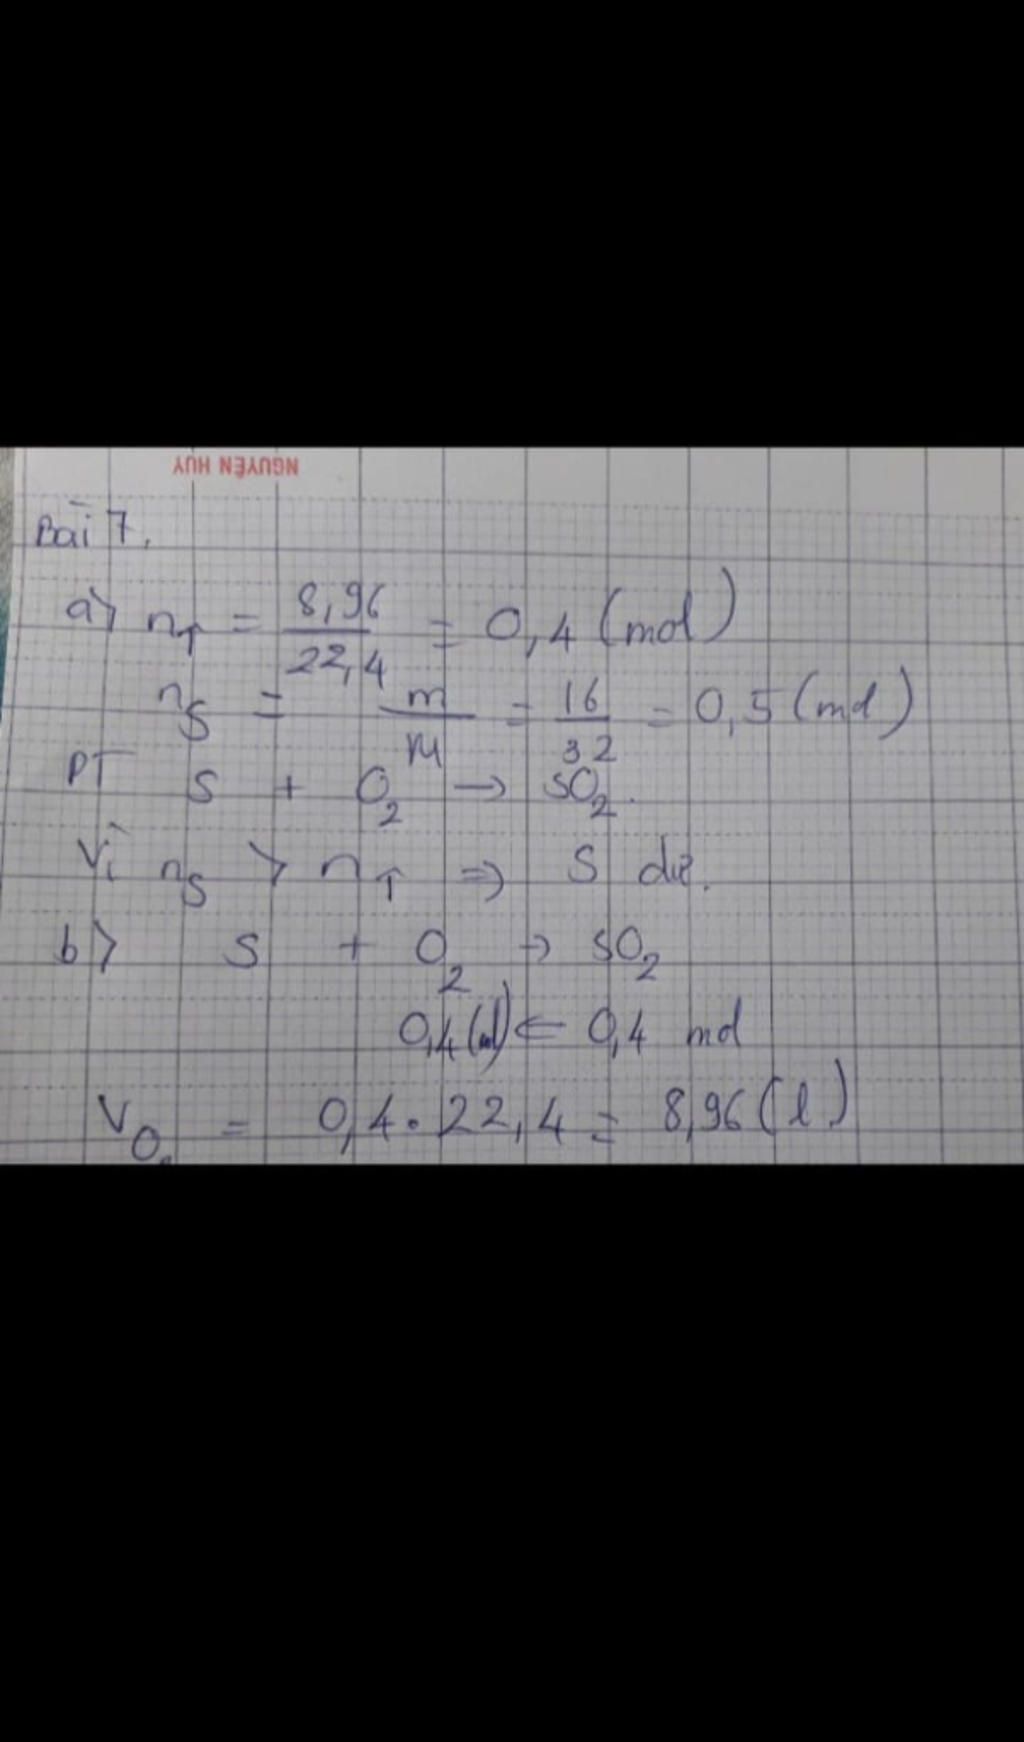 NGUYỄN HUY
Bài 7.
a) n↑ = 8,96 / 22,4 = 0,4 (mol)
nS = m / M = 16 / 32 = 0,5 (mol)
PT S + O2 → SO2.
Vì nS > n↑ ⇒ S dư.
b) S + O2 → SO2
0,4 (mol) ← 0,4 mol
VO2 = 0,4 . 22,4 = 8,96 (l)